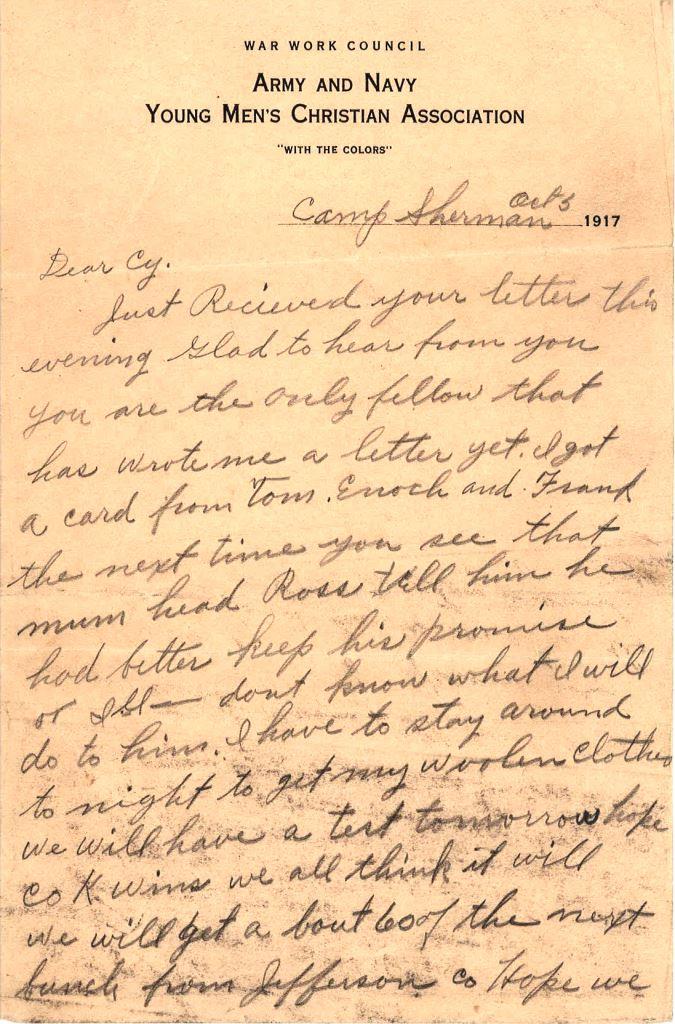 WAR WORK COUNCIL
ARMY AND NAVY
YOUNG MEN'S CHRISTIAN ASSOCIATION
"WITH THE COLORS"
Camp Sherman Oct 3 1917
Dear Cy.
Just Recieved your letter this
evening Glad to hear from you
you are the only fellow that
has wrote me a letter yet. I got
a card from Tom. Enoch and Frank
the next time you see that
mum head Ross tell him he
had better keep his promise
or Ill— dont know what I will
do to him. I have to stay around
to night to get my woolen clothes
we will have a test tomorrow hope
Co K wins we all think it will
we will get a bout 60 of the next
bunch from Jefferson Co Hope we